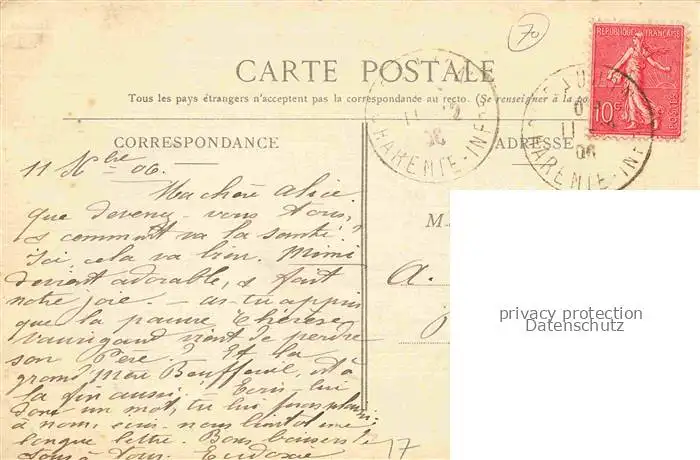 70
REPUBLIQUE FRANÇAISE
10c
POSTES
CARTE POSTALE
Tous les pays étrangers n'acceptent pas la correspondance au recto. (Se renseigner à la po
CORRESPONDANCE
ADRESSE
CHARENTE-INF
11
06
CHARENTE-INF
11
06
11 Nbre 06.
Ma chère Alice
que devenez-vous tous,
& comment va la santé?
Ici, cela va bien. Mimi
devient adorable, & fait
notre joie. – as-tu appris
que la pauvre Thérèse
vient de perdre
son Père? Et la
grand Mère Bouffeuil, est à
la fin aussi. – Ecris-lui
donc un mot, tu lui feras plaisir.
à nous, écris-nous bientôt une
longue lettre. Bons baisers
à tous. Eudoxie
M.
A.
17
privacy protection
Datenschutz